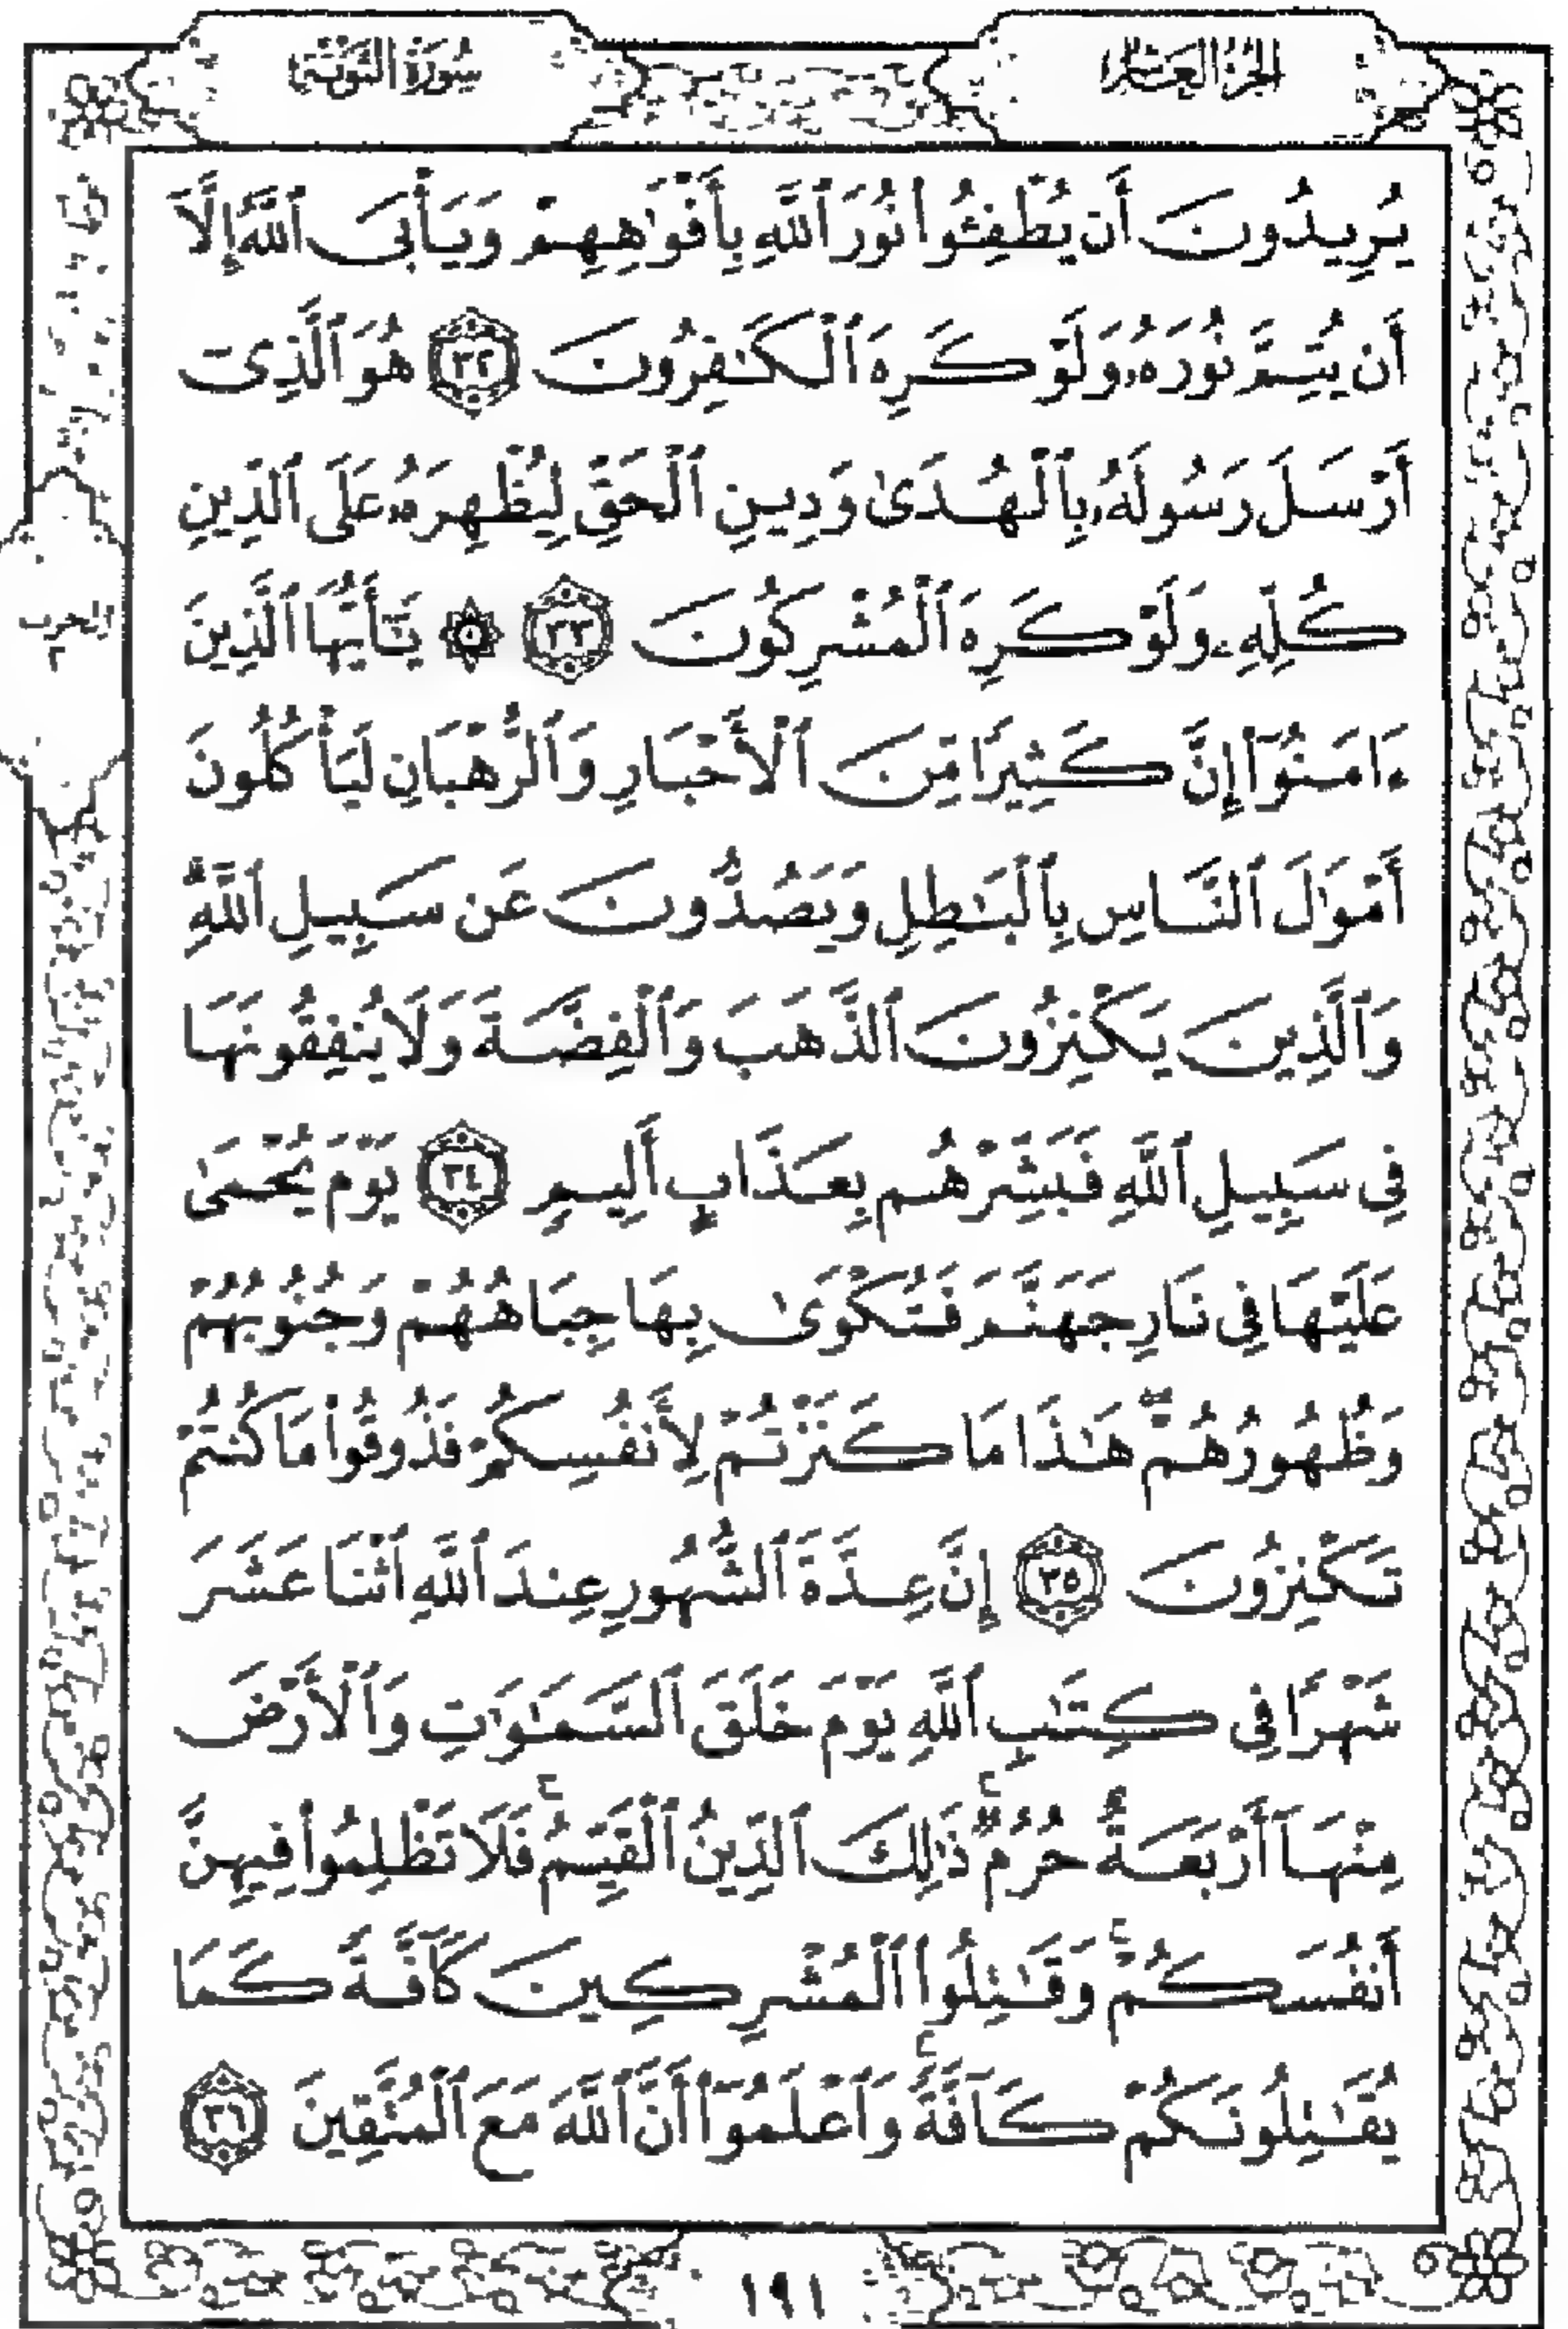 الجزء العاشر
سورة التوبة
يُرِيدُونَ أَن يُطْفِـُٔوا۟ نُورَ ٱللَّهِ بِأَفْوَٰهِهِمْ وَيَأْبَى ٱللَّهُ إِلَّآ
أَن يُتِمَّ نُورَهُۥ وَلَوْ كَرِهَ ٱلْكَـٰفِرُونَ ٣٢ هُوَ ٱلَّذِىٓ
أَرْسَلَ رَسُولَهُۥ بِٱلْهُدَىٰ وَدِينِ ٱلْحَقِّ لِيُظْهِرَهُۥ عَلَى ٱلدِّينِ
كُلِّهِۦ وَلَوْ كَرِهَ ٱلْمُشْرِكُونَ ٣٣ ۞ يَـٰٓأَيُّهَا ٱلَّذِينَ
ءَامَنُوٓا۟ إِنَّ كَثِيرًا مِّنَ ٱلْأَحْبَارِ وَٱلرُّهْبَانِ لَيَأْكُلُونَ
أَمْوَٰلَ ٱلنَّاسِ بِٱلْبَـٰطِلِ وَيَصُدُّونَ عَن سَبِيلِ ٱللَّهِ ۗ
وَٱلَّذِينَ يَكْنِزُونَ ٱلذَّهَبَ وَٱلْفِضَّةَ وَلَا يُنفِقُونَهَا
فِى سَبِيلِ ٱللَّهِ فَبَشِّرْهُم بِعَذَابٍ أَلِيمٍ ٣٤ يَوْمَ يُحْمَىٰ
عَلَيْهَا فِى نَارِ جَهَنَّمَ فَتُكْوَىٰ بِهَا جِبَاهُهُمْ وَجُنُوبُهُمْ
وَظُهُورُهُمْ ۖ هَـٰذَا مَا كَنَزْتُمْ لِأَنفُسِكُمْ فَذُوقُوا۟ مَا كُنتُمْ
تَكْنِزُونَ ٣٥ إِنَّ عِدَّةَ ٱلشُّهُورِ عِندَ ٱللَّهِ ٱثْنَا عَشَرَ
شَهْرًا فِى كِتَـٰبِ ٱللَّهِ يَوْمَ خَلَقَ ٱلسَّمَـٰوَٰتِ وَٱلْأَرْضَ
مِنْهَآ أَرْبَعَةٌ حُرُمٌ ۚ ذَٰلِكَ ٱلدِّينُ ٱلْقَيِّمُ ۚ فَلَا تَظْلِمُوا۟ فِيهِنَّ
أَنفُسَكُمْ ۚ وَقَـٰتِلُوا۟ ٱلْمُشْرِكِينَ كَآفَّةً كَمَا
يُقَـٰتِلُونَكُمْ كَآفَّةً ۚ وَٱعْلَمُوٓا۟ أَنَّ ٱللَّهَ مَعَ ٱلْمُتَّقِينَ ٣٦
١٩١